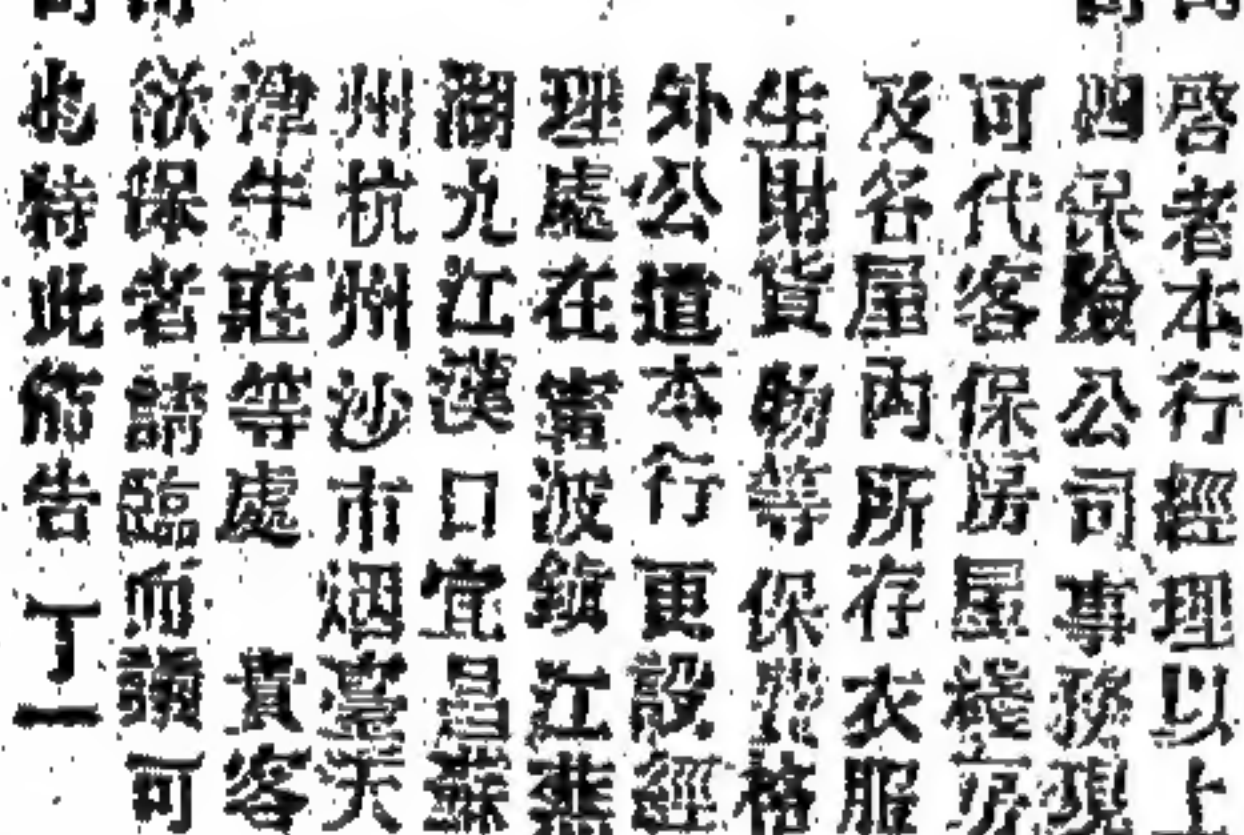 啓者本行經理以上
四保險公司事務現
可代客保房屋棧房
及各屋內所存衣服
生財貨物等保格
外公道本行更設經
理處在甯波鎮江蕪
湖九江漢口宜昌蘇
州杭州沙市烟臺天
津牛莊等處 貴客
欲保者請臨面議可
也特此佈告